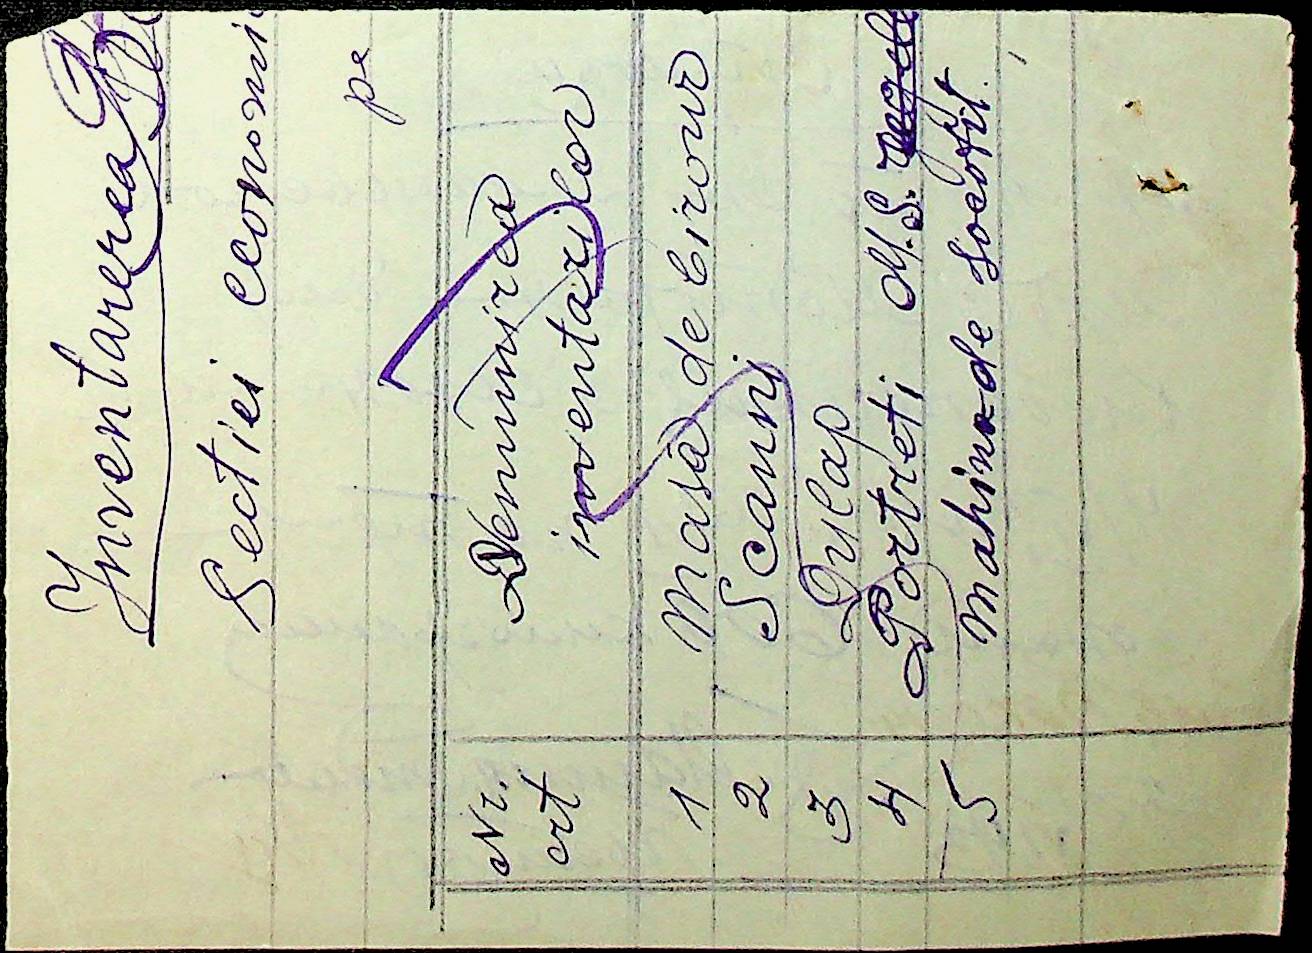 Inventarerea
Secției economi
pe
Nr. crt
Denumirea inventarilor
1 Masă de birour
2 Scauni
3 Dulap
4 Portreti M.S.
5 Mahina de socotit.